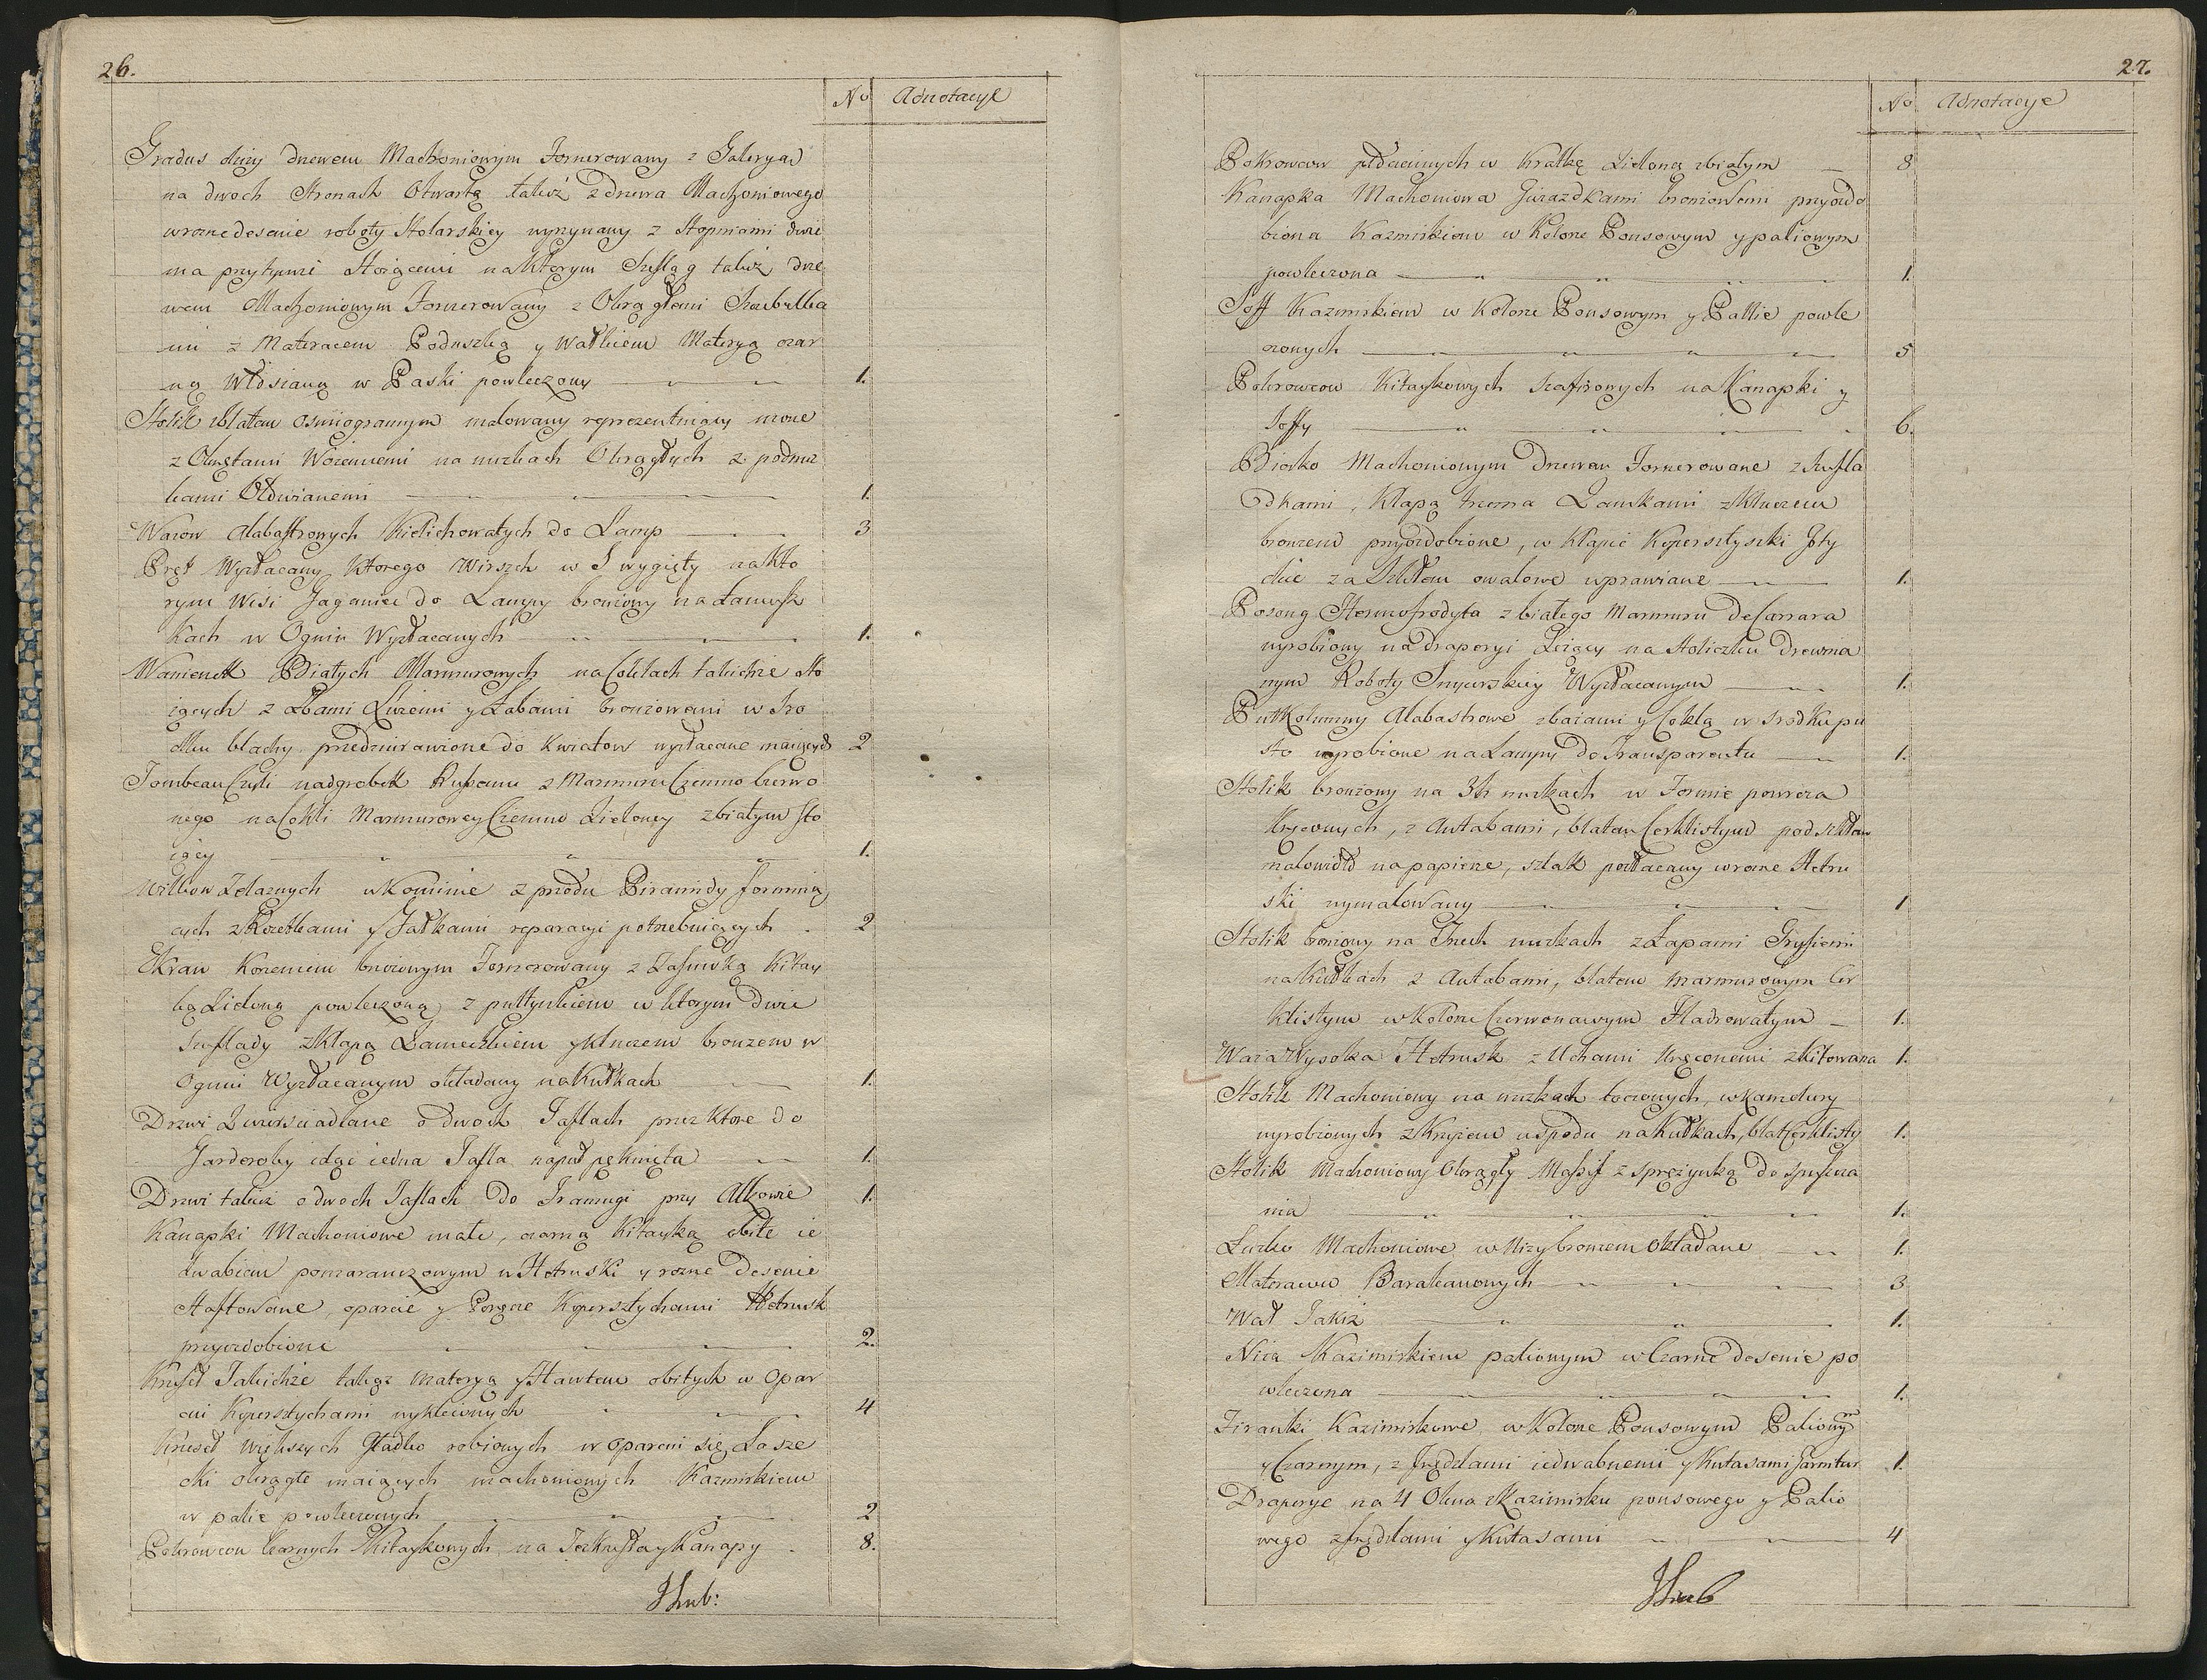 26.
No Adnotacye
Gradus duży drzewem Machoniowym Fornerowany z Galeryą
na dwoch Stronach Otwartą takuż z drzewa Machoniowego
w rozne desenie roboty Stolarskiey wyrzynany z Stopniami dwie
ma przytymże Stoiącemi na ktorym Szesląg takuż drze
wem Machoniowym Fornerowany z Okrągłemi
mi z Materacem Poduszką y Wałkiem Materyą czar
ną Włosianą w Paski powleczony 1.
Stolik blatem osmiogrannym malowany reprezentuiący
z na nużkach Okrągłych z podnuż
kami Ołowianemi 1.
Wazow Alabastrowych Kielichowatych do Lamp 3
Pręt Wyzłacany ktorego Wierszch w S wygięty na kto
rym Wisi Jaganiec do Lampy bronzowy na Łancusz
kach w Ogniu Wyzłacanych 1.
Wanienek Białych Marmurowych na Coklach takichże sto
iących z Łbami Lwiemi y Łabami bronzowemi w Szro
dku blachy przedziurawione do Kwiatow wyzłacane maiących 2
Tombeau Czyli nadgrobek z Marmuru Ciemno Czerwo
nego na Cokli Marmurowey Ciemno Zieloney z białym sto
iący 1.
Wilkow Żelaznych w Kominie z przodu Piramidy formuią
cych z Rozetkami y Gałkami reparacyi potrzebuiących 2
Ekran Korzeniem brzozowym Fornerowany z Zasuwką Kitay
ką Zieloną powleczoną z pultynkiem w ktorym dwie
Szuflady z Klapą Zameczkiem y kluczem bronzem w
Ogniu Wyzłacanym okładany na Kułkach 1.
Drzwi Zwiersciadlane o dwoch Taflach przez ktore do
Garderoby idąc iedna Tafla napuł pęknięta 1.
Drzwi takież o dwoch Taflach do Framugi przy Alkowie 1.
Kanapki Machoniowe małe, czarną Kitayką obite ie
dwabiem pomaranczowym w Hetruski y rozne Desenie
Haftowane, oparcie y Poręcze Kopersztychami Hetrusk
przyozdobione 2.
Krzeseł Takichże takąż Materyą y Hawtem obitych w opar
ciu Kopersztychami wykleionych 4
Krzeseł większych Gładko robionych w oparciu się
cki okrągłe maiących machoniowych Kazimirkiem
w palie powleczonych 2
Pokrowcow Czarnych Kitaykowych na Krzesła y Kanapy 8.

27.
No Adnotacye
Pokrowcow płociennych w Kratkę Zieloną z białym 8
Kanapka Machoniowa Gwiazdkami bronzowemi przyozdo
biona Kazimirkiem w Kolorze Ponsowym y paliowym
powleczona 1.
Soff Kazimirkiem w Kolorze Ponsowym y Pallie powle
czonych 5
Pokrowcow Kitaykowych Szafirowych na Kanapki y
Soffy 6.
Biorko Machoniowym Drzewem Fornerowane z Szufla
dkami, Klapą trzema Zamkami z Kluczem
bronzem przyozdobione, w Klapie Kopersztyszki
dkie za Szkłem owalowe wprawiane 1.
Posong Hermofrodyta z białego Marmuru de Carrara
wyrobiony na draperyi Leżący na Stoliczku Drewnia
nym Roboty Snycerskiey Wyzłacanym 1.
Puł Kolumny Alabastrowe z bazami y Coklą w srodku pu
sto wyrobione na Lampę do Transparentu 1.
Stolik bronzowy na 3ch nużkach w Formie powroza
Kręconych, z Antabami, blatem Cerklistym pod szkłem
malowidło na papierze, szlak pozłacany w rozne Hetru
ski wymalowany 1
Stolik bronzowy na Trzech nużkach z Łapami Gryfiemi
na Kułkach z Antabami, blatem marmurowym Cer
klistym w Kolorze Czerwonawym Fladrowatym 1.
Waza Wysoka Hetrusk z Uchami kręconemi zkitowana 1.
Stolik Machoniowy na nużkach toczonych, w kamelury
wyrobionych z Krzyżem u spodu na Kułkach, blat Cerklisty 1.
Stolik Machoniowy Okrągły Massif z sprężynką do spuszcza
nia 1.
Łużko Machoniowe w Niży bronzem Okładane 1
Materacow Barakanowych 3
Wał Takiż 1.
Niża Kazimirkiem paliowym w Czarne desenie po
wleczona 1.
Firanki Kazimirkowe w Kolorze Ponsowym Paliowym
y Czarnym, z frędzlami iedwabnemi y Kutasami Garnitur 1.
Draperye na 4 Okna z Kazimirku ponsowego y Palio
wego z frędzlami y Kutasami 4